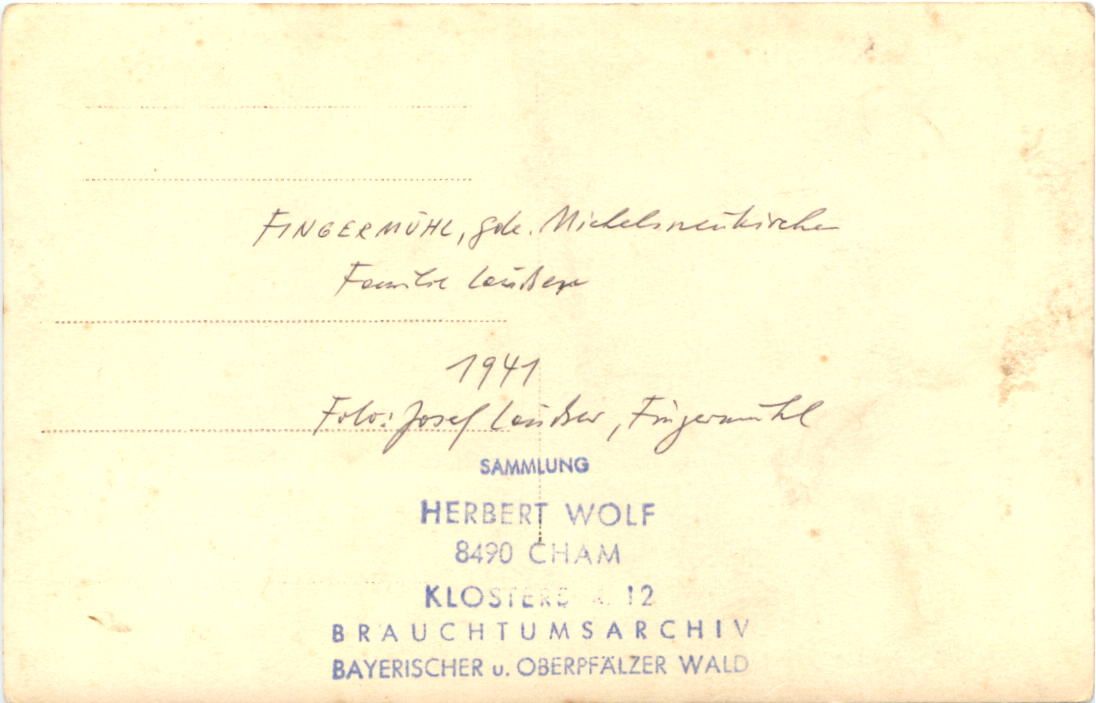 FINGERMÜHL, Gde. Michelsneukirchen
Familie
1941
Foto: Josef Fingermühl
SAMMLUNG
HERBERT WOLF
8490 CHAM
12
BRAUCHTUMSARCHIV
BAYERISCHER u. OBERPFÄLZER WALD